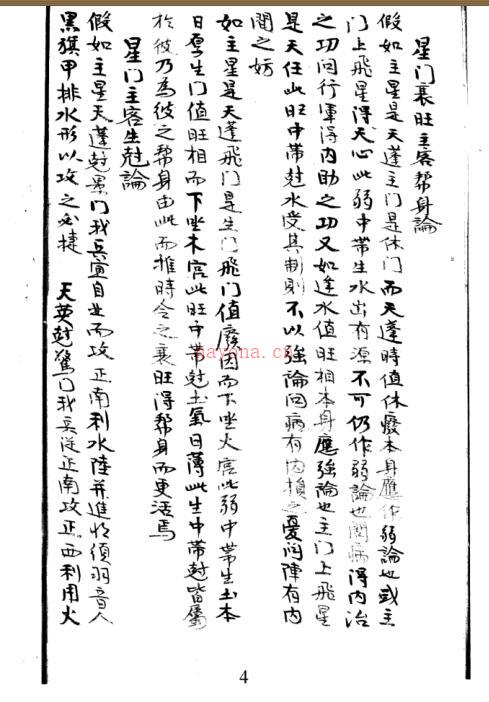 星门衰旺主客帮身論
假如主星是天蓬主门是休门而天蓬時值休廢本身應作弱論也或主
门上飛星得天心此弱中帶生水出有源不可仍作弱論也問病得内治
之功问行軍得内助之功又如逢水值旺相本身應強論也主门上飛星
是天任此旺中帶尅水受其制則不以強論问病有内損之憂问陣有内
間之妨
如主星是天蓬飛门是生门飛门值廢囚而下坐火宫此弱中帶生土本
日辱生门值旺相而下坐木宫此旺中帶尅土氣日薄此生中帶尅皆屬
於彼乃為彼之帮身由此而推時令之衰旺得帮身而更活焉
星门主客生尅論
假如主星天蓬尅景门我兵宜自北而攻正南利水陸并進将須羽音人
黑旗甲排水形以攻之必捷 天英尅驚门我兵從正南攻正西利用火
nayona.cn
4